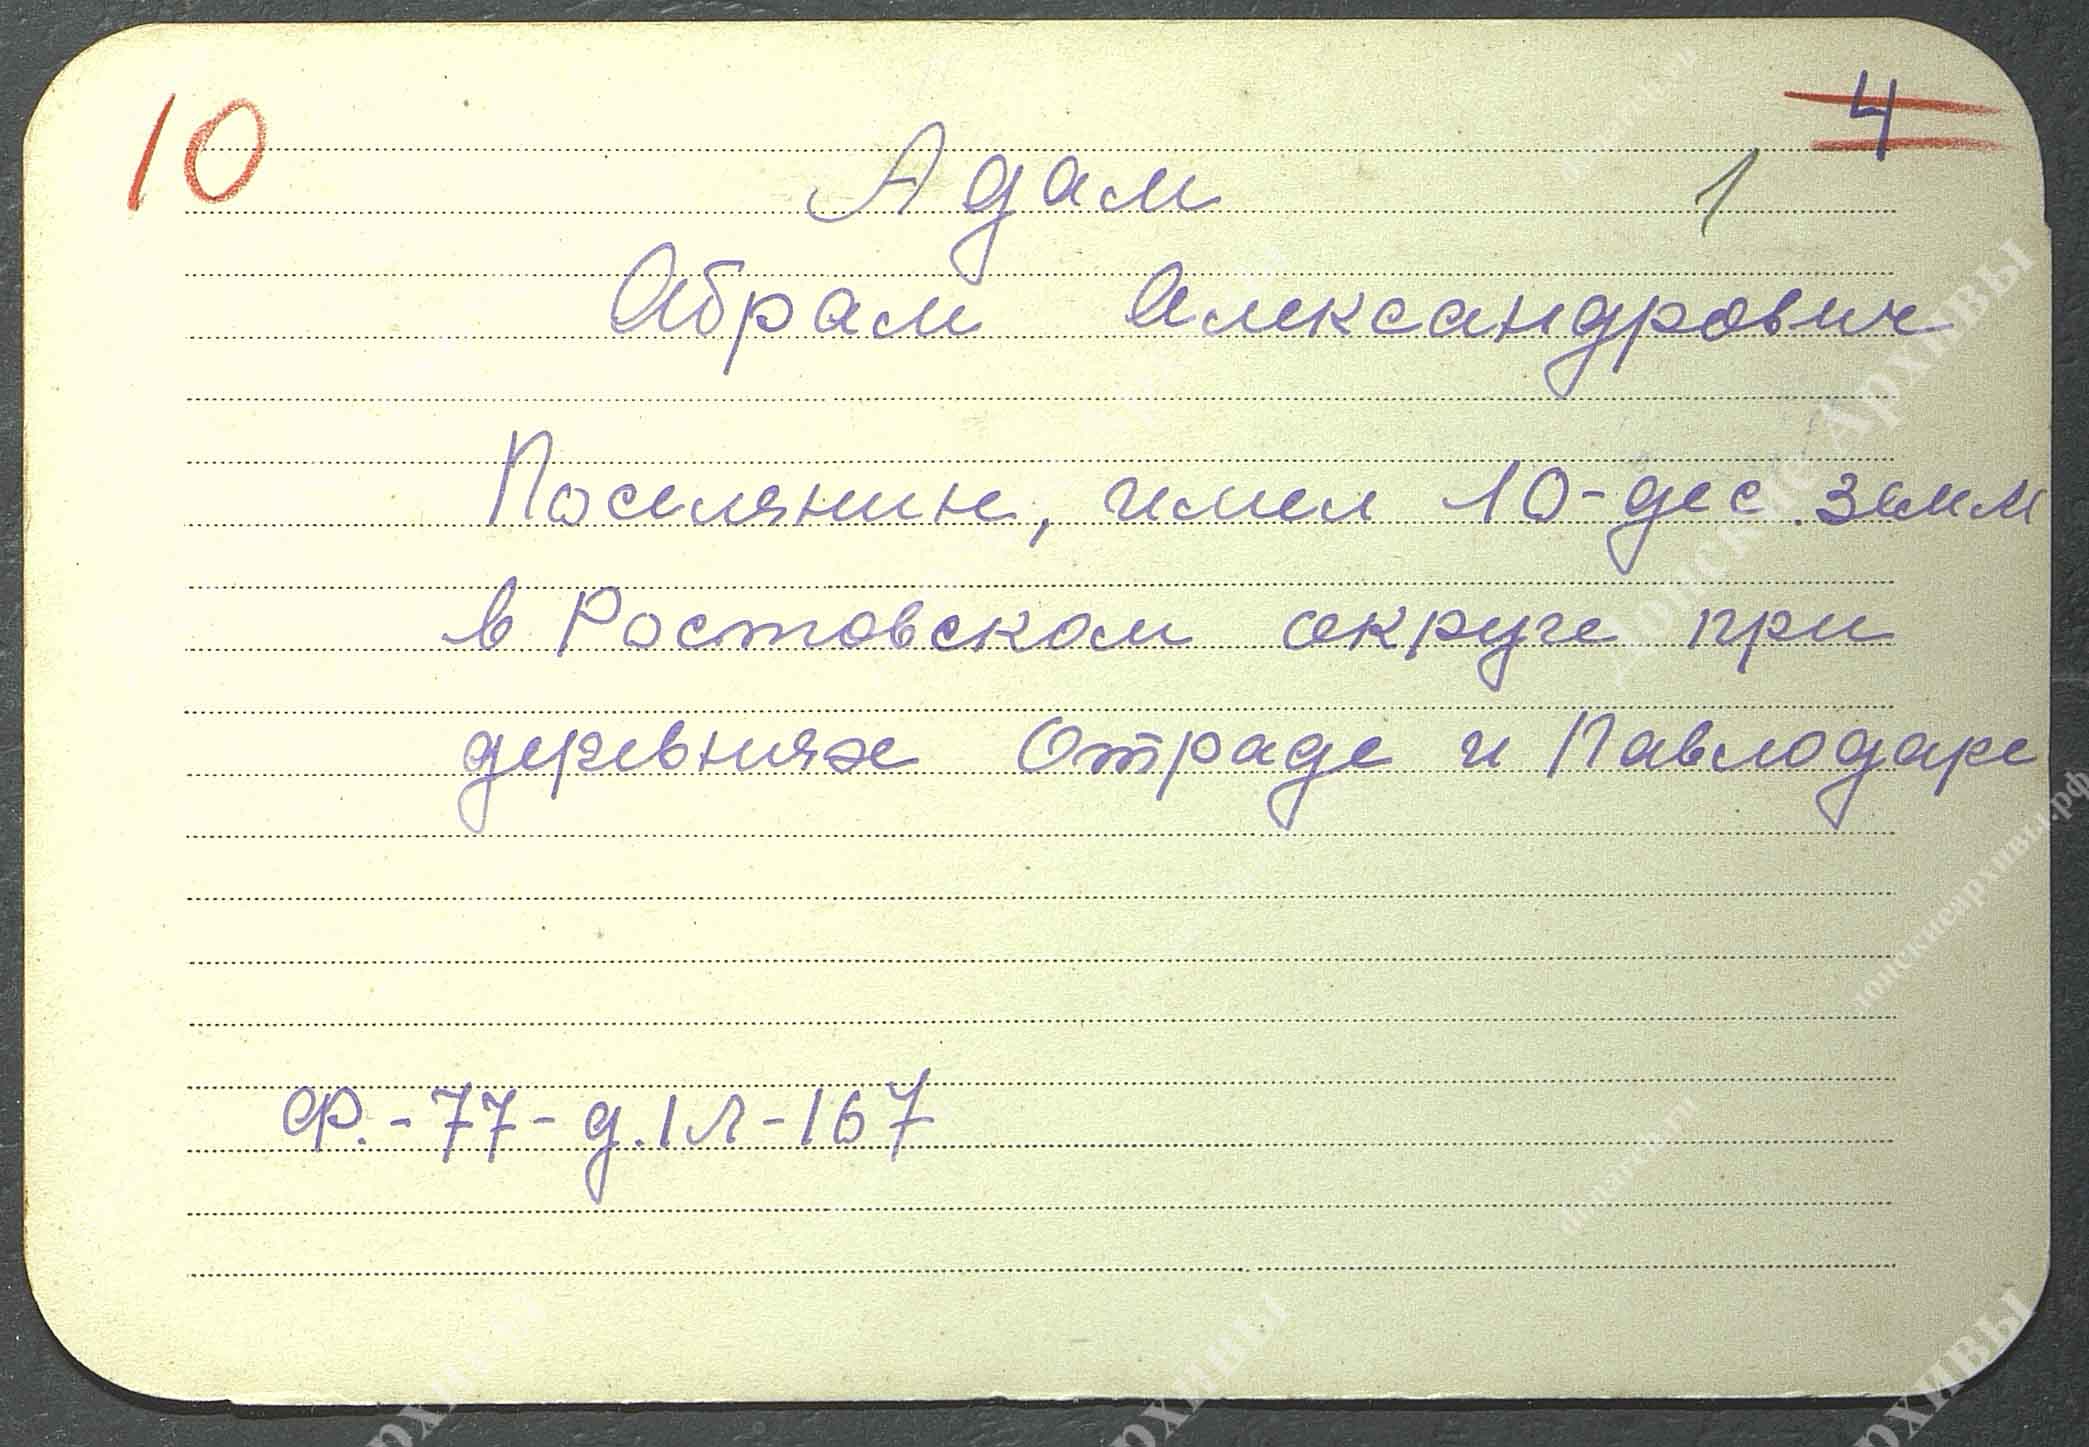 10
4
Адам 1
Абрам Александрович
Поселянин, имел 10-дес. земли
в Ростовском округе при
деревнях Отраде и Павлодаре
Ф.-77-д.1 л-167
Донские Архивы
донскиеархивы.рф
donarch.ru